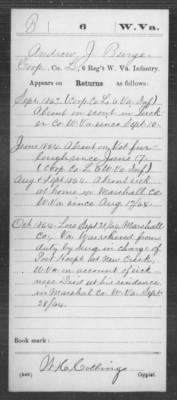 B 6 W.Va.
Andrew J. Burge
Corp., Co. L, 6 Reg't W. Va. Infantry.
Appears on Returns as follows:
Sept. 1862 (Corp Co. L 6 Va. Inf)
Absent on scout in Tuck
er Co. W. Va. since Sept. 10.
June 1864. Absent on Vet fur
lough since June 17.
(Corp Co. L 6 W Va. Inf)
Aug & Sept. 1864. Absent sick
at home in Marshall Co.
W Va. since Aug 17/64.
Oct. 1864. Loss Sept 28/64 Marshall
Co. Va. Was relieved from
duty by Surg. in charge of
Post Hospt. at New Creek,
W. Va. on account of sick
ness Died at his residence
in Marshall Co. W. Va. Sept
28/64.
Book mark:
Copyist.